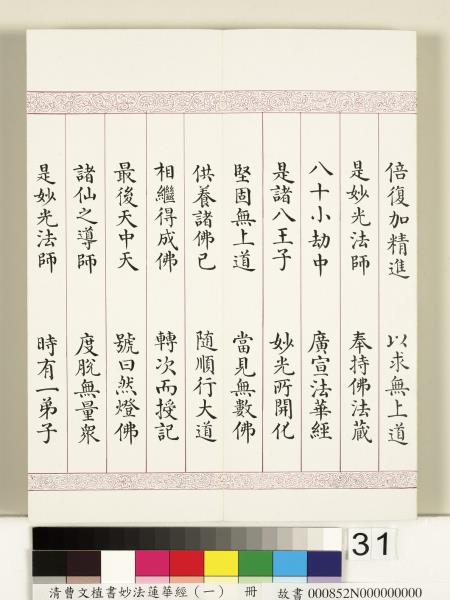 倍復加精進 以求無上道
是妙光法師 奉持佛法藏
八十小劫中 廣宣法華經
是諸八王子 妙光所開化
堅固無上道 當見無數佛
供養諸佛已 隨順行大道
相繼得成佛 轉次而授記
最後天中天 號曰然燈佛
諸仙之導師 度脫無量眾
是妙光法師 時有一弟子
31
清曹文植書妙法蓮華經(一) 冊 故書 000852N000000000